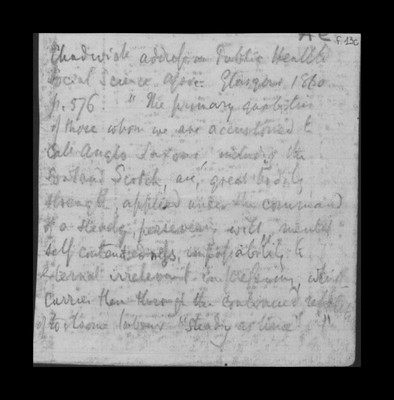 Chadwick address on Public Health
Social Science Assoc. Glasgow 1860
p. 576 "The primary qualities
of those whom we are accustomed to
call Anglo Saxons, including the
Lowland Scotch, are, great bodily
strength applied under the command
of a steady, persevering will, mental
self contentedness, impassibility to
external irrelevant impressions, which
carries them through the continued
of toilsome labour "steady as time"."